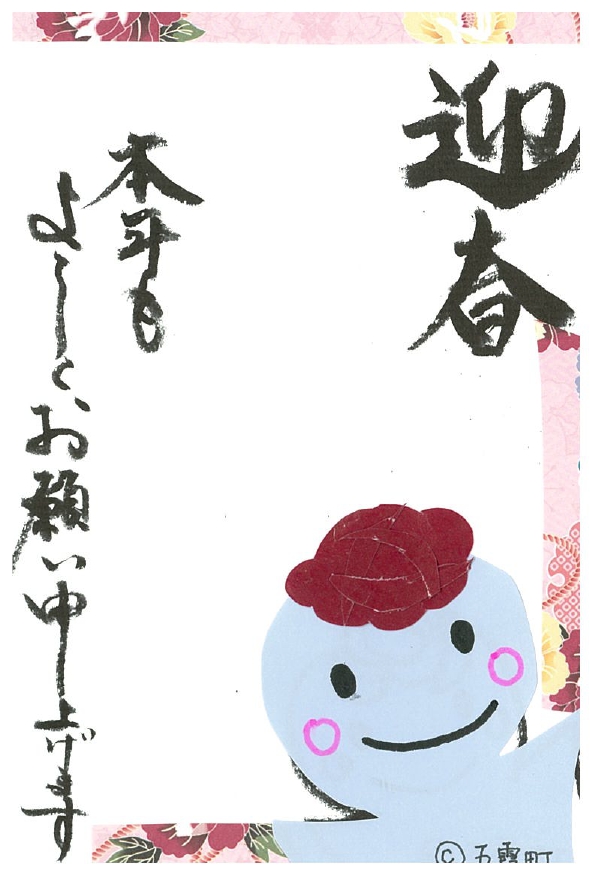 迎春
本年も
よろしくお願い申し上げます
©五霞町